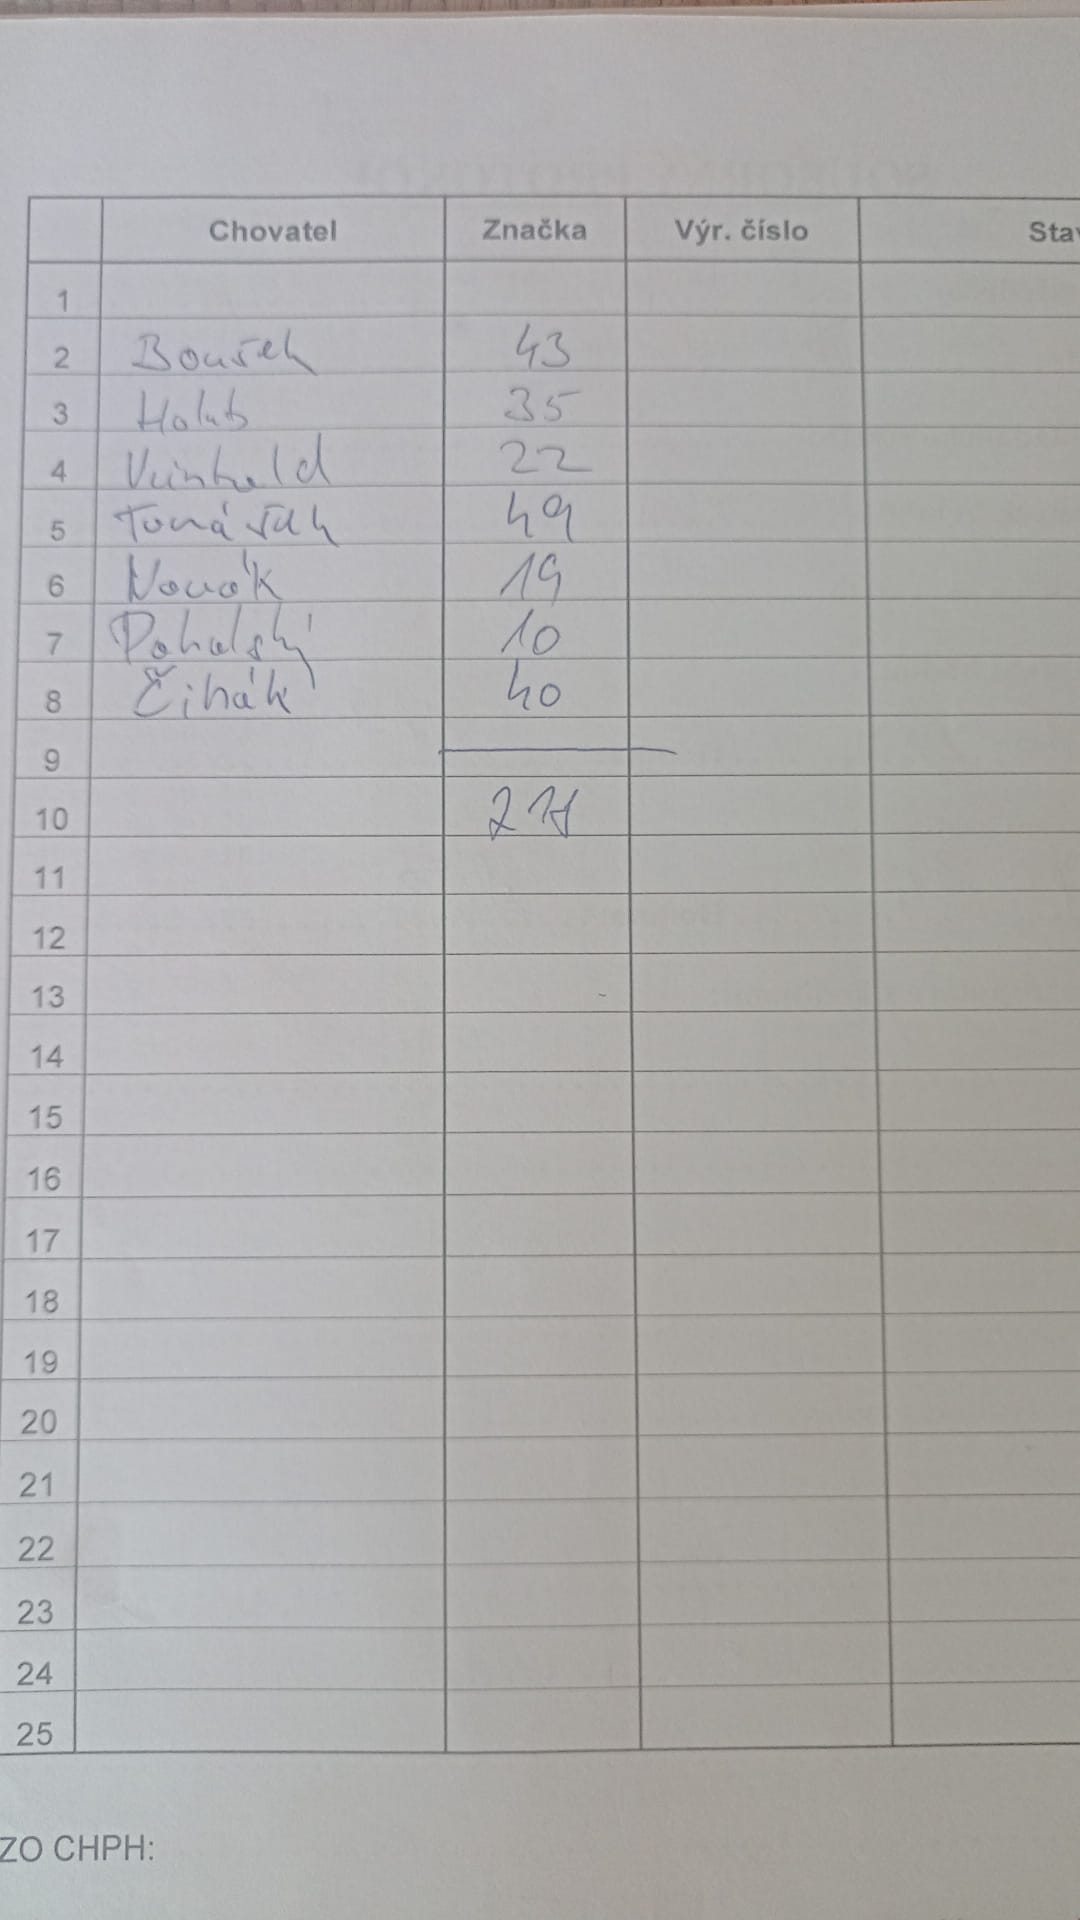 Chovatel Značka Výr. číslo Sta
1
2 Bouřek 43
3 Holub 35
4 Veinhold 22
5 Tomášek 49
6 Novák 19
7 Pohalský 10
8 Čihák 40
9
10 218
11
12
13
14
15
16
17
18
19
20
21
22
23
24
25
ZO CHPH: